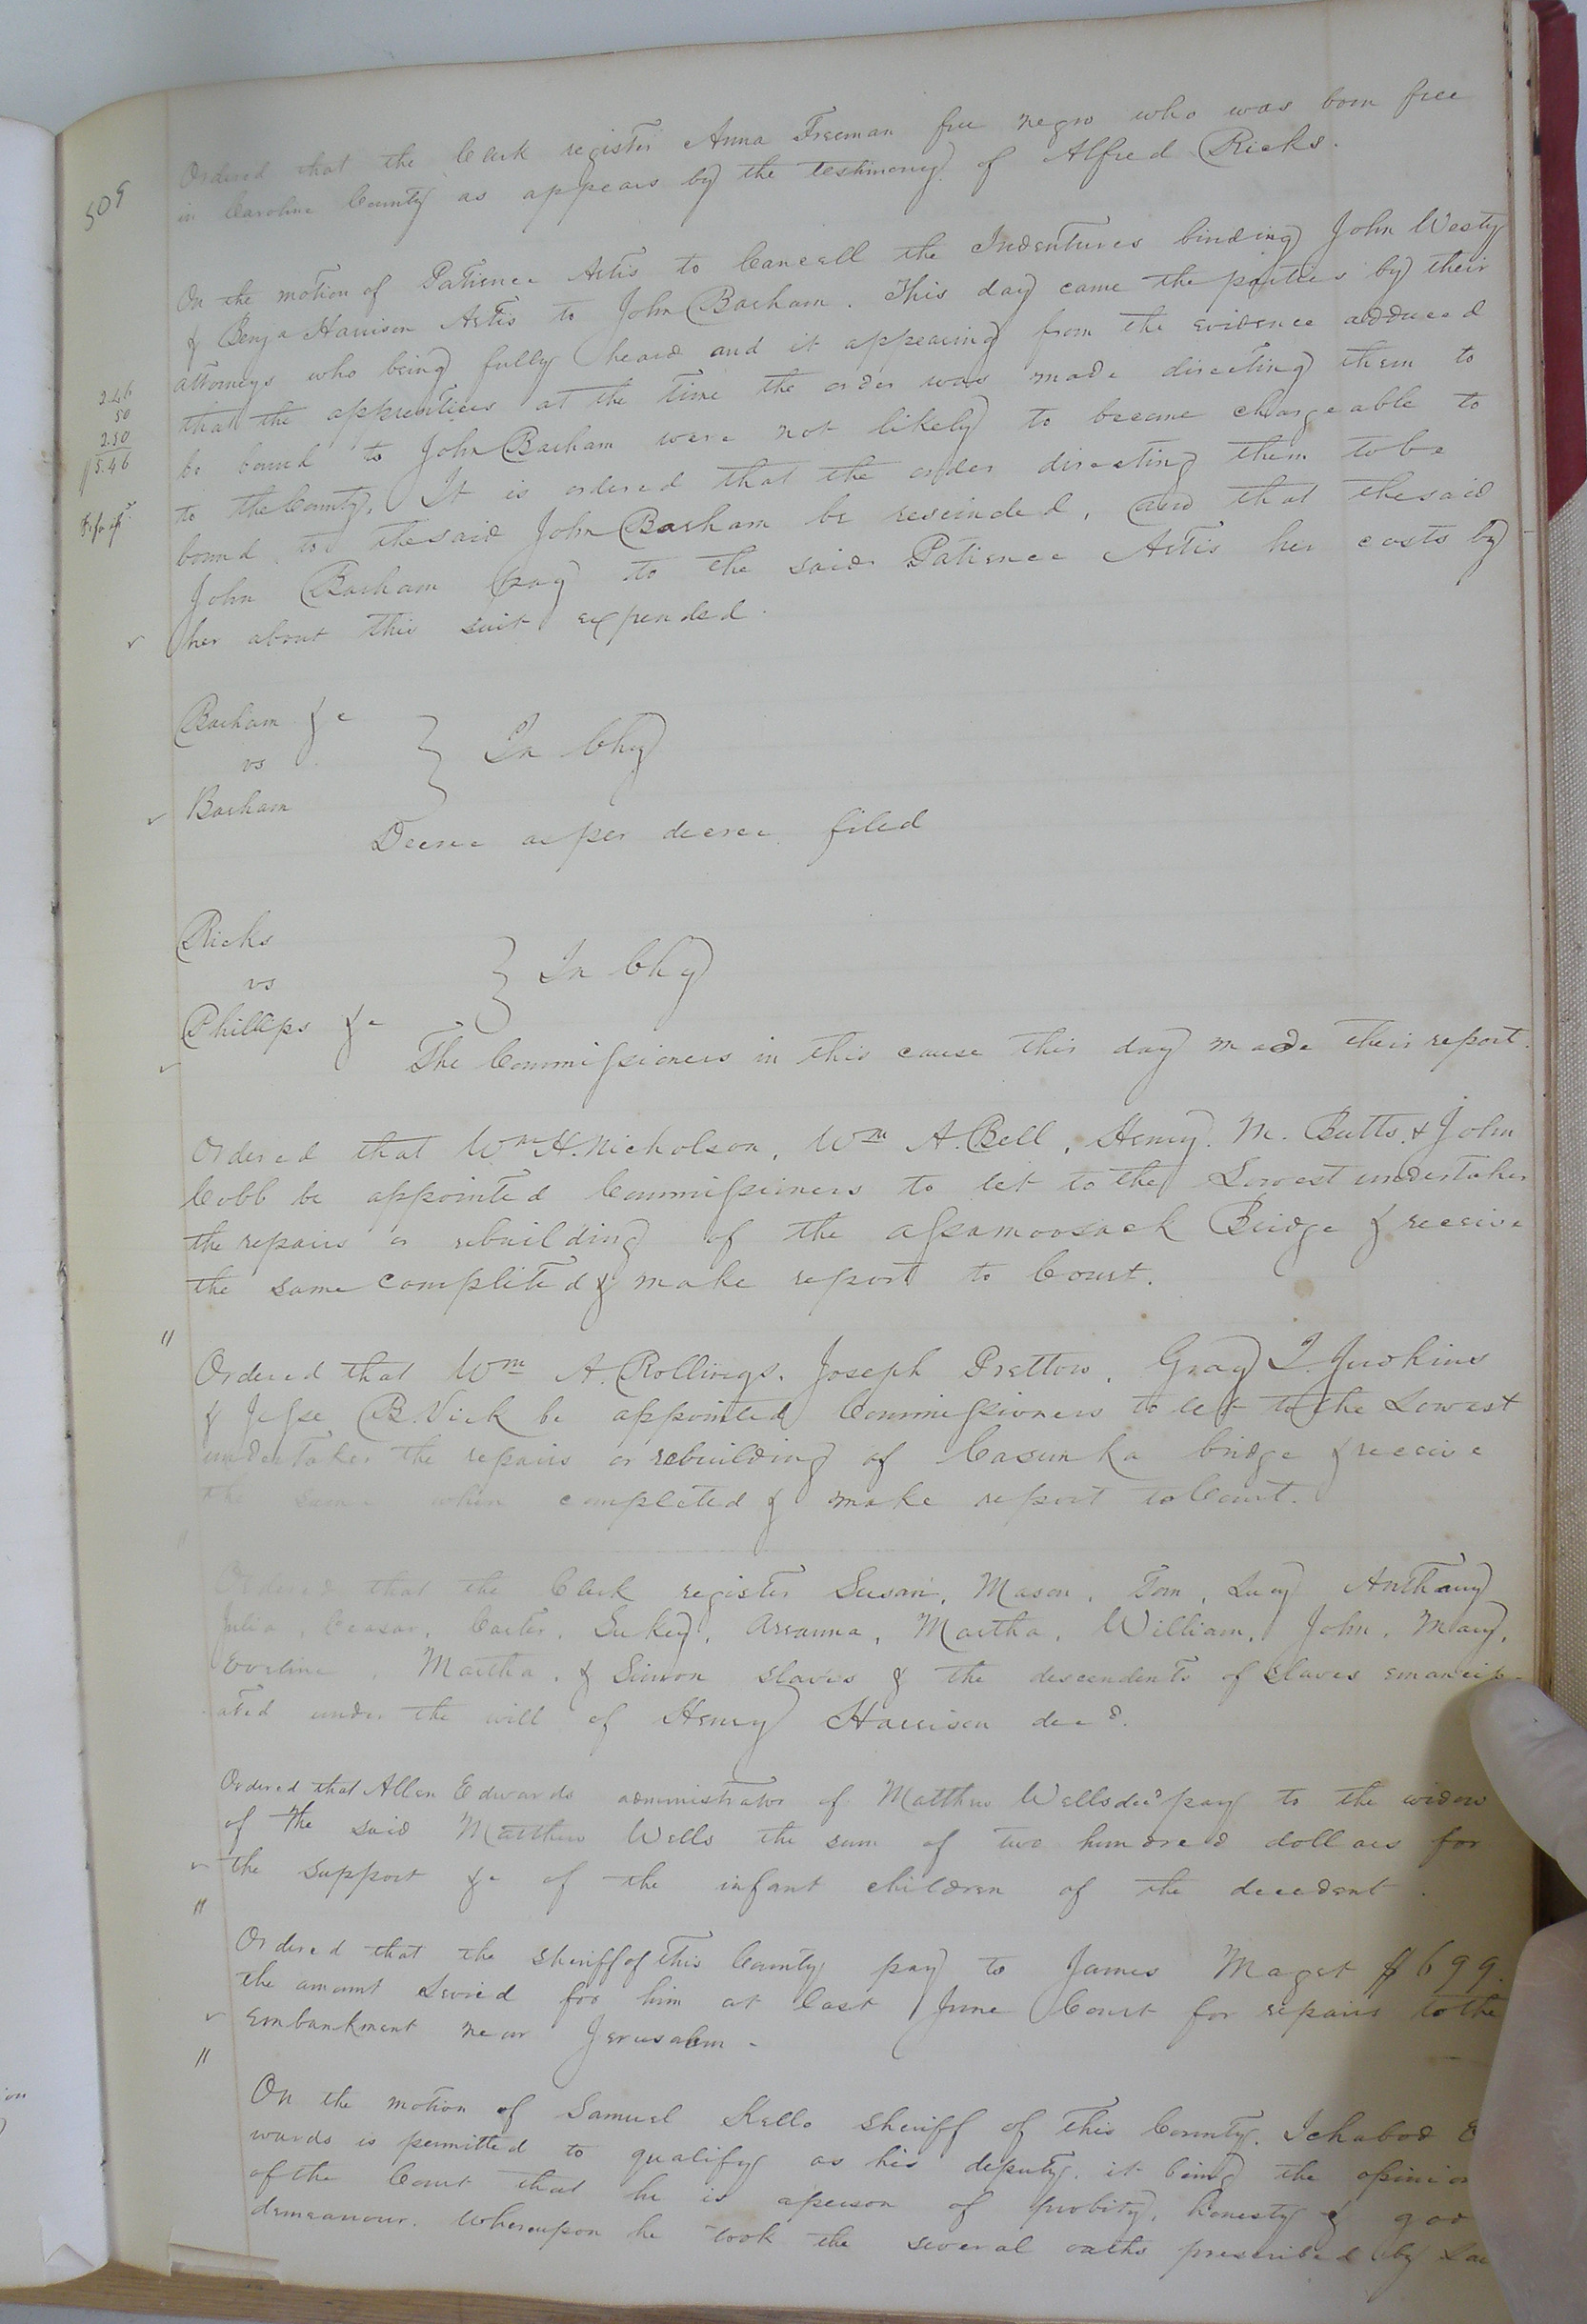 509
Ordered that the Clerk register Anna Freeman free negro who was born free
in Caroline County as appears by the testimony of Alfred Ricks.
On the motion of Patience Artis to Cancell the Indentures binding John Westy
& Benja Harrison Artis to John Barham. This day came the parties by their
attorneys who being fully heard and it appearing from the evidence adduced
that the apprentices at the time the order was made directing them to
be bound to John Barham were not likely to become chargeable to
to the County, It is ordered that the order directing them to be
bound to the said John Barham be rescinded, and that the said
John Barham pay to the said Patience Artis her costs by
her about this suit expended.
2.46
50
2.50
$5.46
Barham &c
vs
Barham
In Chy
Decree as per decree filed
Ricks
vs
Phillips &c
In Chy
The Commissioners in this cause this day made their report.
Ordered that Wm H. Nicholson, Wm A. Bell, Henry M. Butts & John
Cobb be appointed Commissioners to let to the Lowest undertaker
the repairs or rebuilding of the assamoosack Bridge & receive
the same completed & make report to Court.
"
Ordered that Wm A. Rollings, Joseph Prettow, Gray T. Judkins
& Jesse B. Vick be appointed Commissioners to let to the Lowest
undertaker the repairs or rebuilding of Casunka bridge & receive
the same when completed & make report to Court.
"
Ordered that the Clerk register Susan, Mason, Tom, Lucy Anthony
Julia Ceasar, Carter, Sukey, Arianna, Martha, William, John, Mary,
Eveline, Martha, & Simon slaves & the descendents of slaves emancip-
ated under the will of Henry Harrison decd.
Ordered that Allen Edwards administrator of Matthew Wells decd pay to the widow
of the said Matthew Wells the sum of two hundred dollars for
the support &c of the infant children of the decedent.
"
Ordered that the sheriff of this County pay to James Maget $699.
the amount Levied for him at last June Court for repairs to the
embankment near Jerusalem -
"
On the motion of Samuel Kello sheriff of this County, Ichabod E
wards is permitted to qualify as his deputy, it being the opinio
of the Court that he is a person of probity, honesty & goo
demeanour. Whereupon he took the several oaths prescribed by La